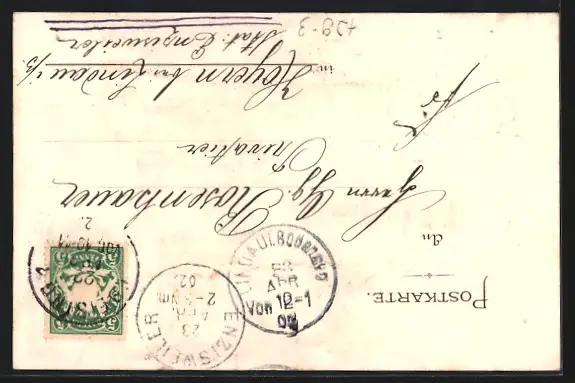 POSTKARTE.
An
Herrn Gg. Rosenhauer
Privatier
in Hoyern bei Lindau i/B.
Stat: Enzisweiler
LINDAU I.BODENSEE
23
APR
Von 12-1
02
ENZISWEILER
23
APR.
2-3 Nm
02